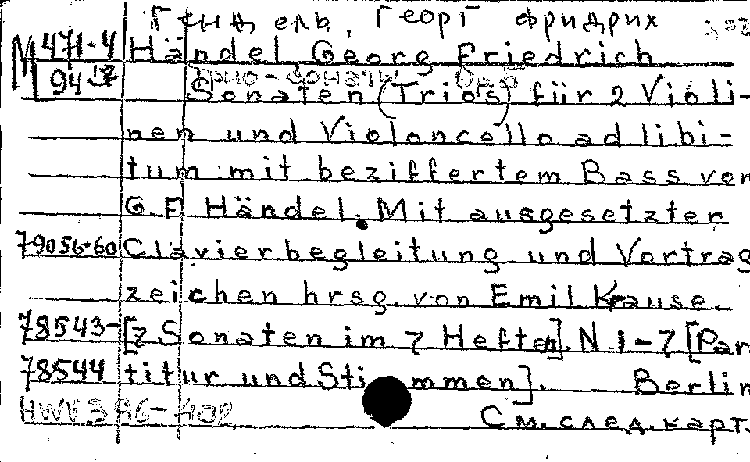 Гендель, Георг Фридрих
M 471-4 Händel Georg Friedrich
94
Sonaten (Trios) für 2 Violi-
nen und Violoncello ad libi-
tum mit beziffertem Bass von
G.F. Händel. Mit ausgesetzter
79056-60 Clavierbegleitung und Vortrag
zeichen hrsg. von Emil Krause.
78543- [7 Sonaten im 7 Heften]. N 1-7 [Par
78544 titur und Stimmen]. Berlin
HWV 386-
См. след. карт.